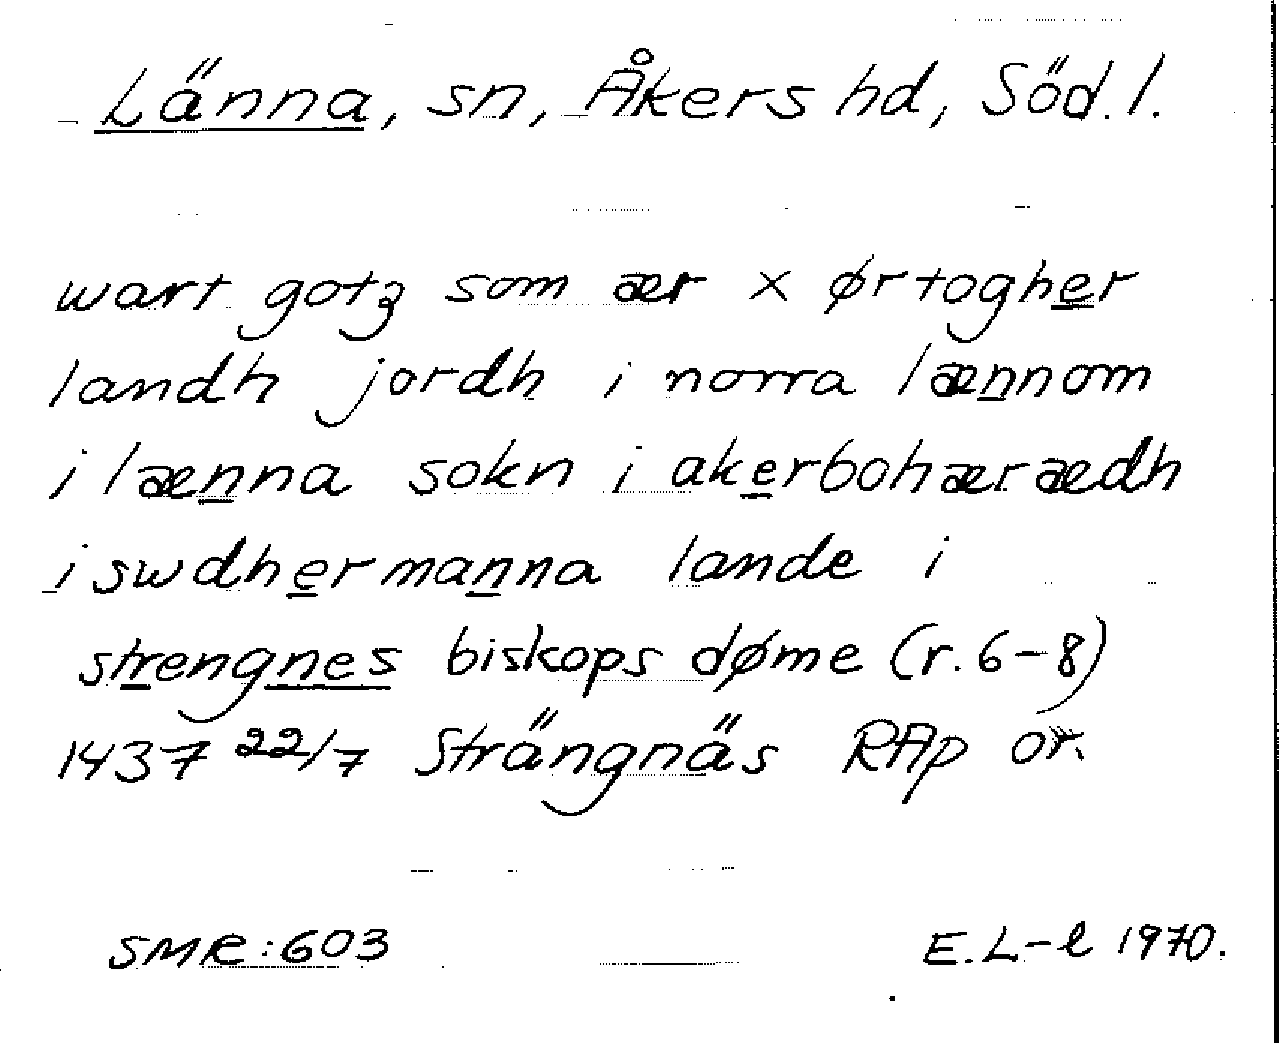 Länna, sn, Åkers hd, Söd. l.
wart gotz som ær x ørtogher
landh jordh i norra lænnom
i lænna sokn i akerbohærædh
i swdhermanna lande i
strengnes biskops døme (r. 6-8)
1437 22/7 Strängnäs RAp or.
SMR: 603
E. L-l 1970.